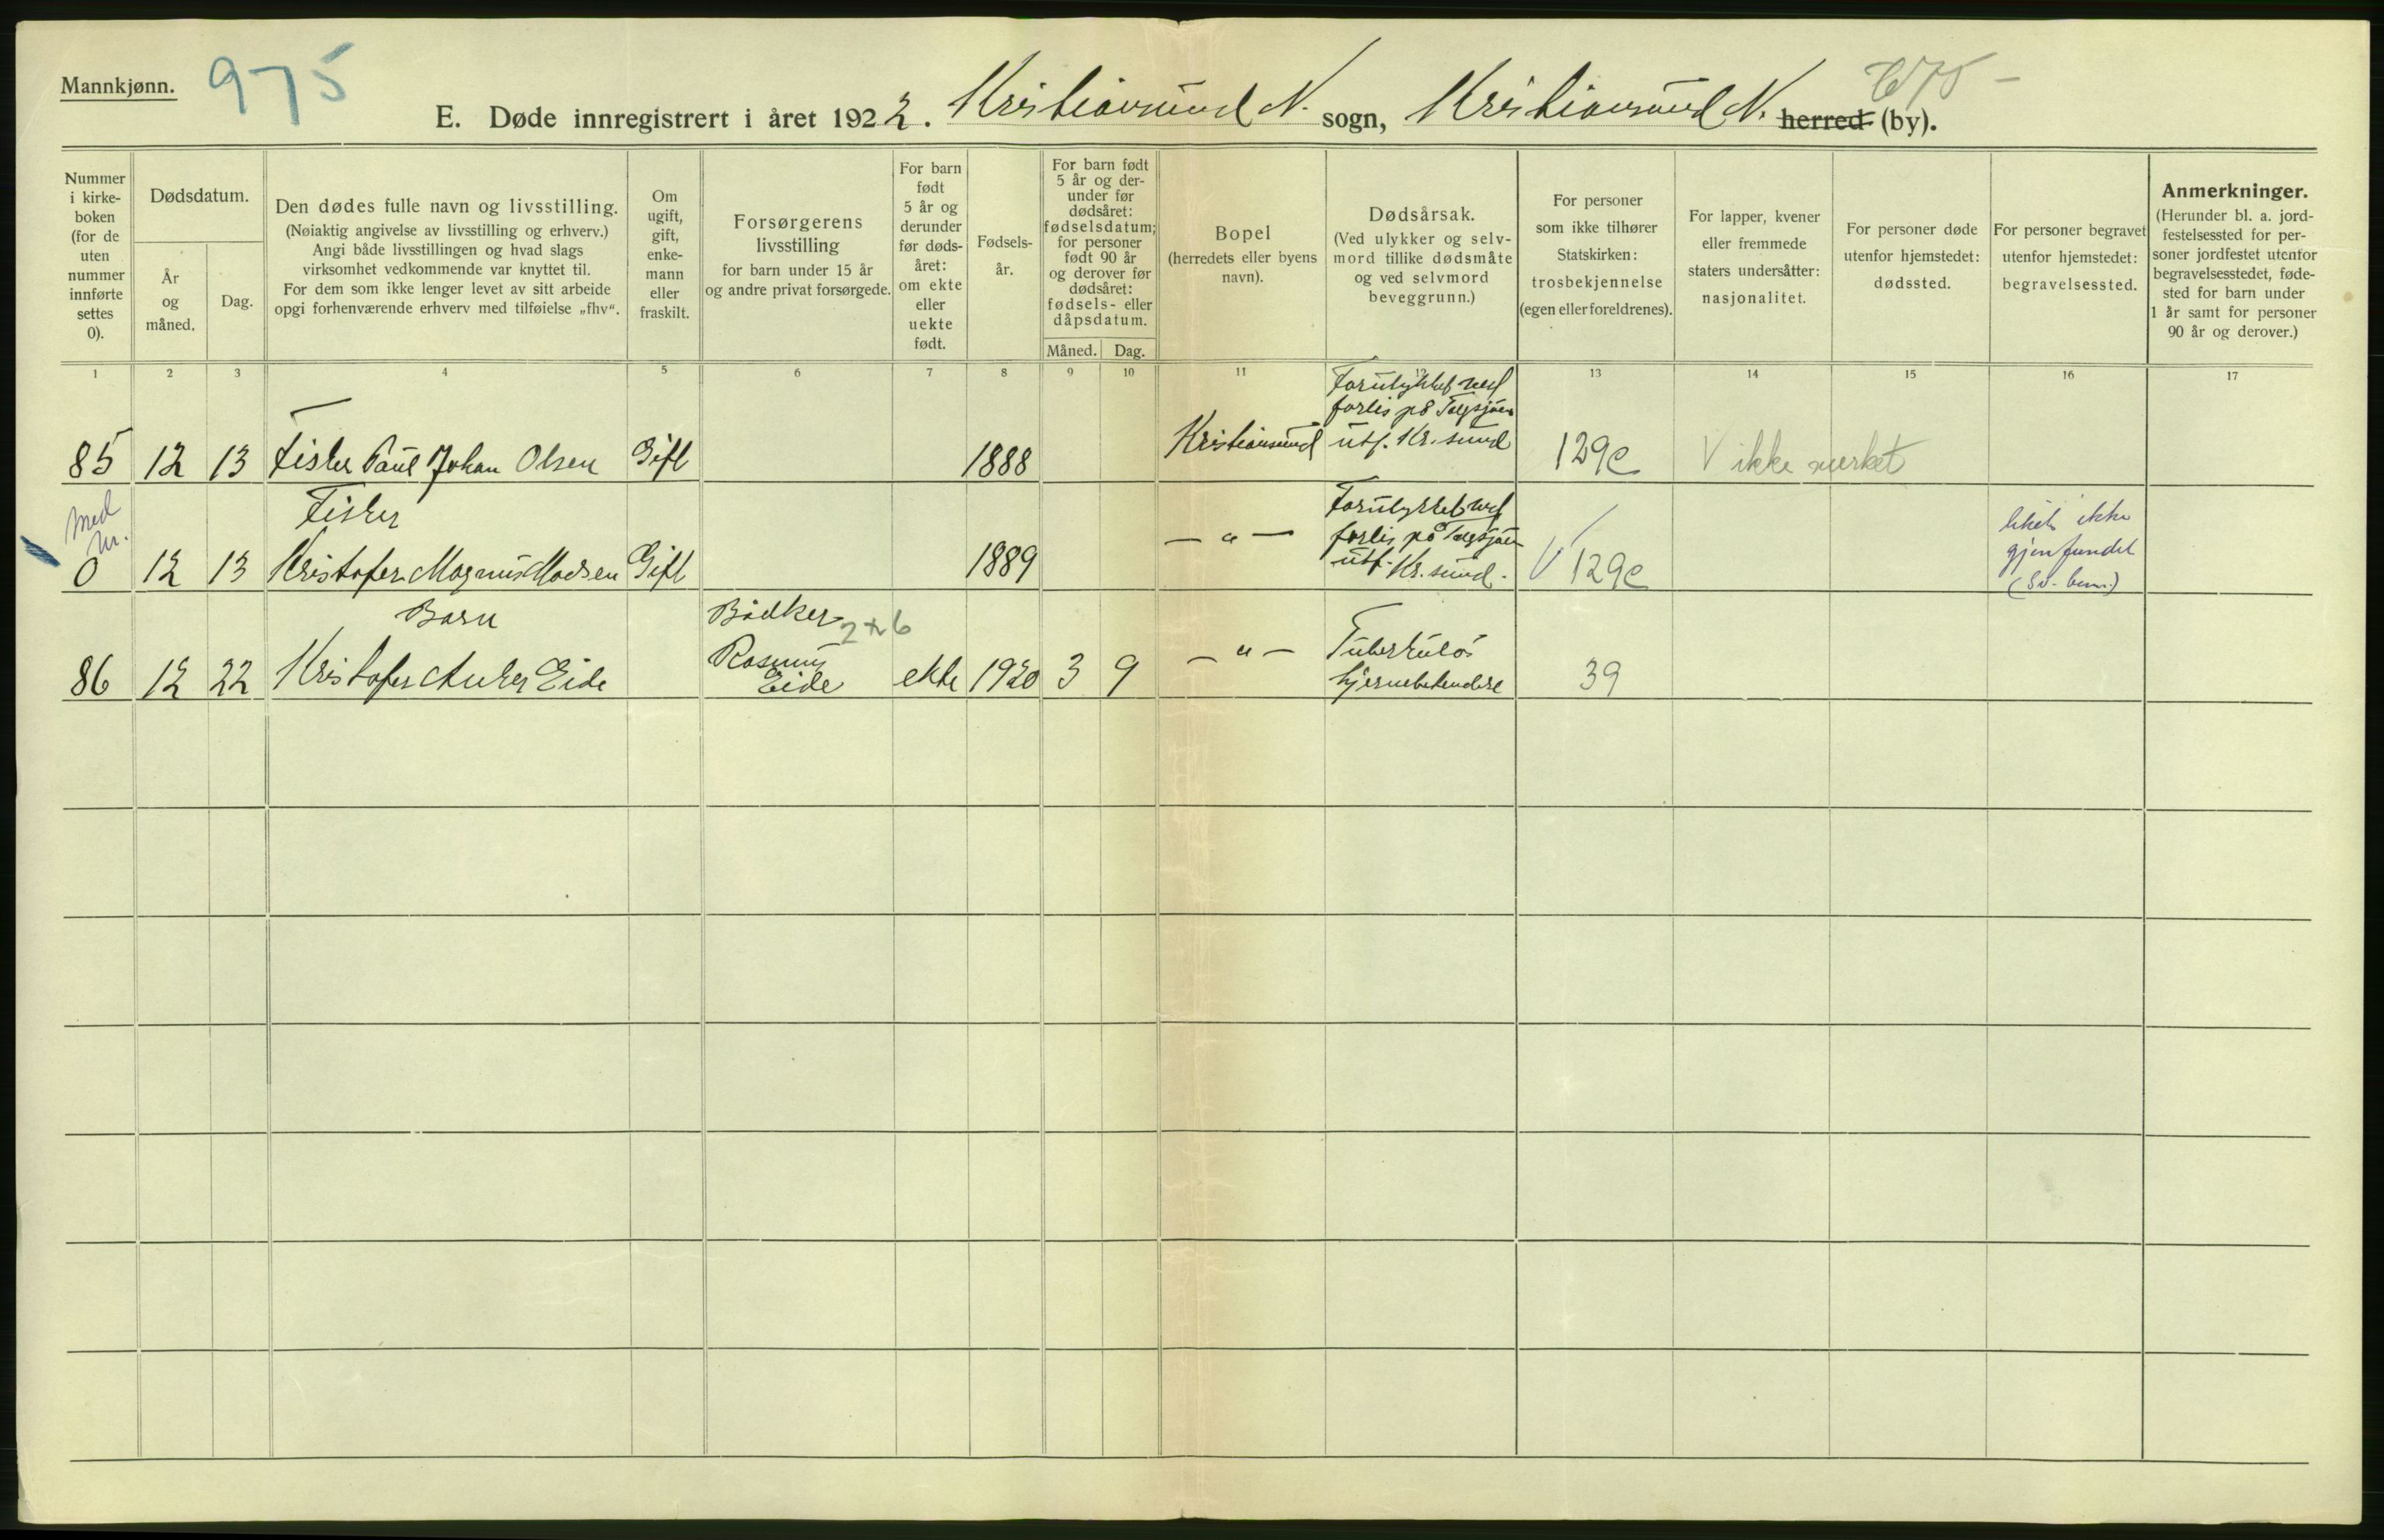 Mannkjønn.
975
E. Døde innregistrert i året 1922. Kristiansund N. sogn, Kristiansund N. herred (by).
Nummer i kirke-boken (for de uten nummer innførte settes 0).
Dødsdatum.
År og måned.
Dag.
Den dødes fulle navn og livsstilling.
(Nøiaktig angivelse av livsstilling og erhverv.)
Angi både livsstillingen og hvad slags
virksomhet vedkommende var knyttet til.
For dem som ikke lenger levet av sitt arbeide
opgi forhenværende erhverv med tilføielse „fhv“.
Om ugift, gift, enke-mann eller fraskilt.
Forsørgerens
livsstilling
for barn under 15 år
og andre privat forsørgede.
For barn født 5 år og derunder før døds-året: om ekte eller uekte født.
Fødsels-år.
For barn født 5 år og der-under før dødsåret: fødselsdatum; for personer født 90 år og derover før dødsåret: fødsels- eller dåpsdatum.
Måned.
Dag.
Bopel
(herredets eller byens
navn).
Dødsårsak.
(Ved ulykker og selv-
mord tillike dødsmåte
og ved selvmord
beveggrunn.)
For personer
som ikke tilhører
Statskirken:
trosbekjennelse
(egen eller foreldrenes).
For lapper, kvener
eller fremmede
staters undersåtter:
nasjonalitet.
For personer døde
utenfor hjemstedet:
dødssted.
For personer begravet
utenfor hjemstedet:
begravelsessted.
Anmerkninger.
(Herunder bl. a. jord-
festelsessted for per-
soner jordfestet utenfor
begravelsesstedet, føde-
sted for barn under
1 år samt for personer
90 år og derover.)
1 2 3 4 5 6 7 8 9 10 11 12 13 14 15 16 17
Forulykket ved
forlis på
85 12 13 Fisker Paul Johan Olsen Gift 1888 Kristiansund utf. Kr. sund 129c V ikke merket
Med nr.
Fisker
Forulykket ved
forlis på
0 12 13 Kristofer Magnus Madsen Gift 1889 — " — utf. Kr. sund. V 129c
liket ikke
gjenfundet
Barn
Bødker 2 + 6
Rasmus
86 12 22 Kristofer Anker Eide Eide ekte 1920 3 9 — " — Tuberkuløs
hjernebetendelse 39